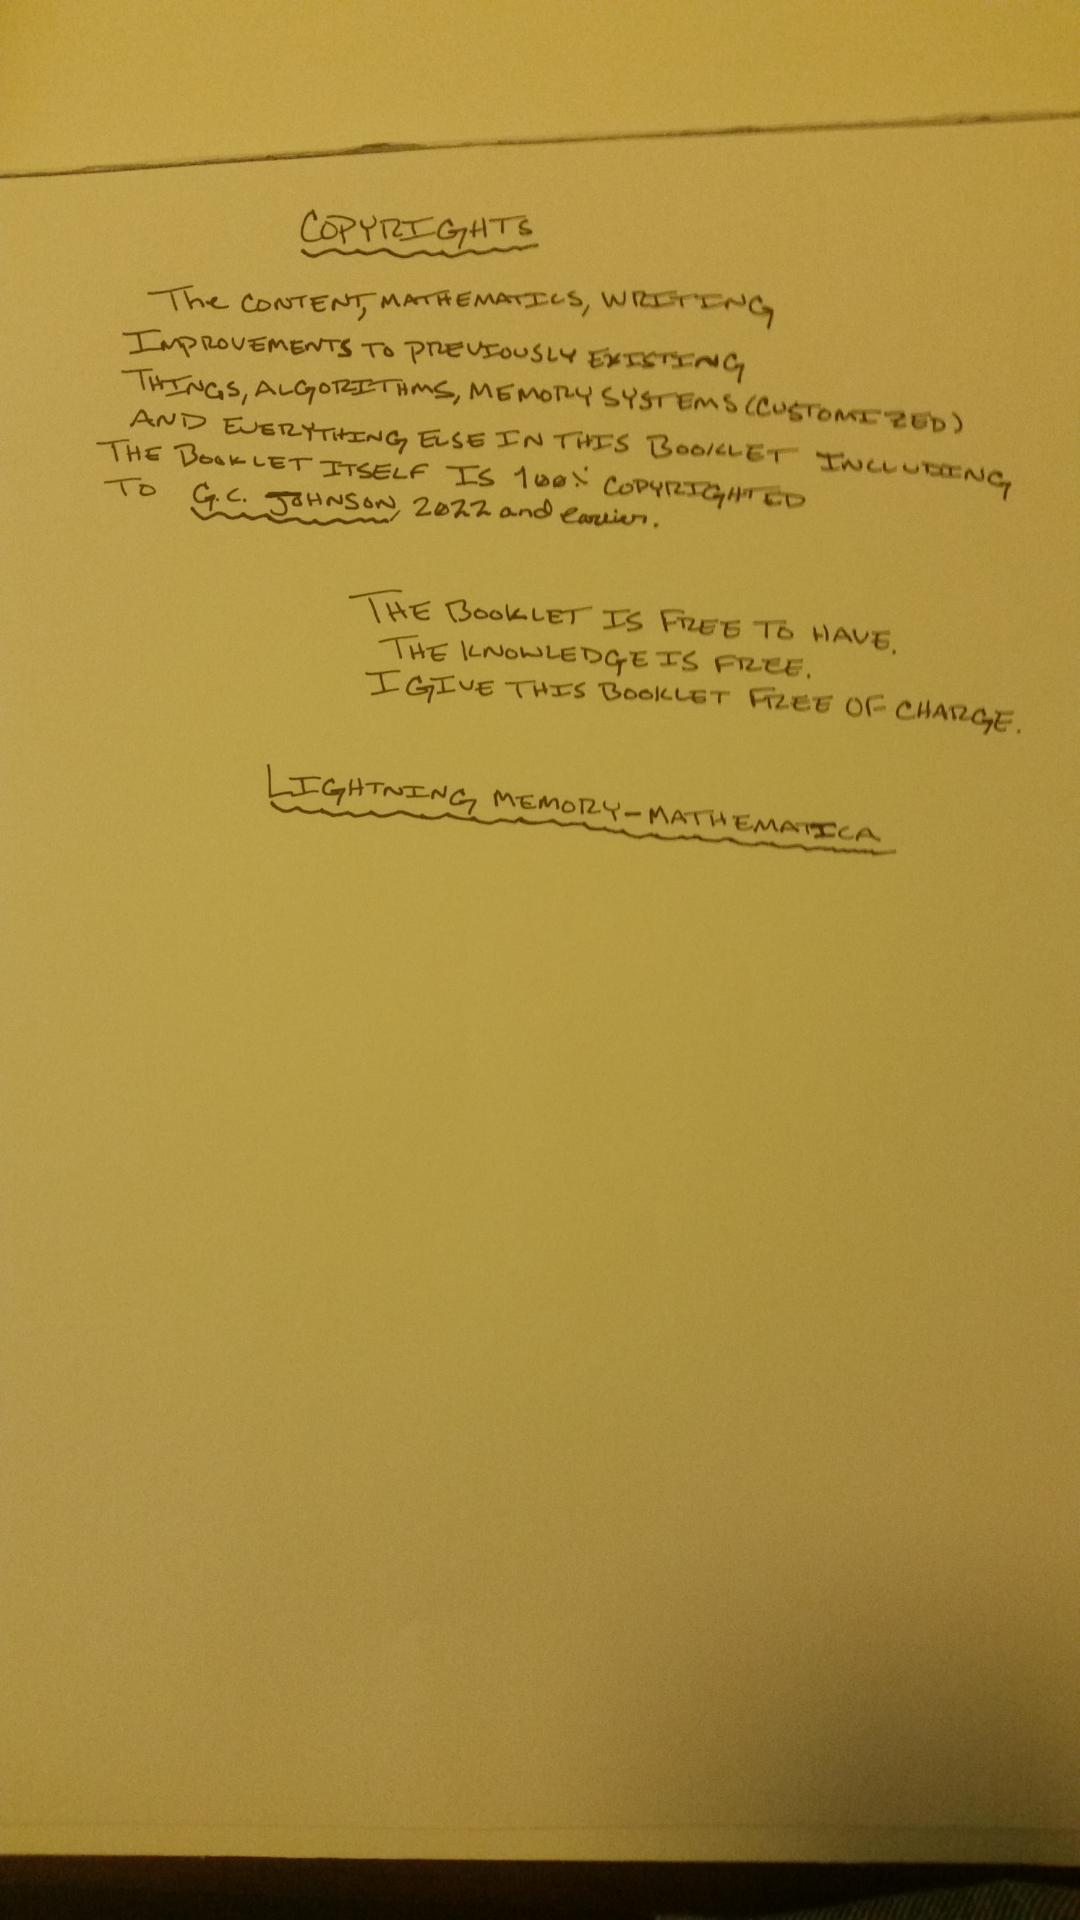 COPYRIGHTS
The CONTENT, MATHEMATICS, WRITING
IMPROVEMENTS TO PREVIOUSLY EXISTING
THINGS, ALGORITHMS, MEMORY SYSTEMS (CUSTOMIZED)
AND EVERYTHING ELSE IN THIS BOOKLET INCLUDING
THE BOOKLET ITSELF IS 100% COPYRIGHTED
TO G.C. JOHNSON, 2022 and earlier.
THE BOOKLET IS FREE TO HAVE.
THE KNOWLEDGE IS FREE.
I GIVE THIS BOOKLET FREE OF CHARGE.
LIGHTNING MEMORY-MATHEMATICA